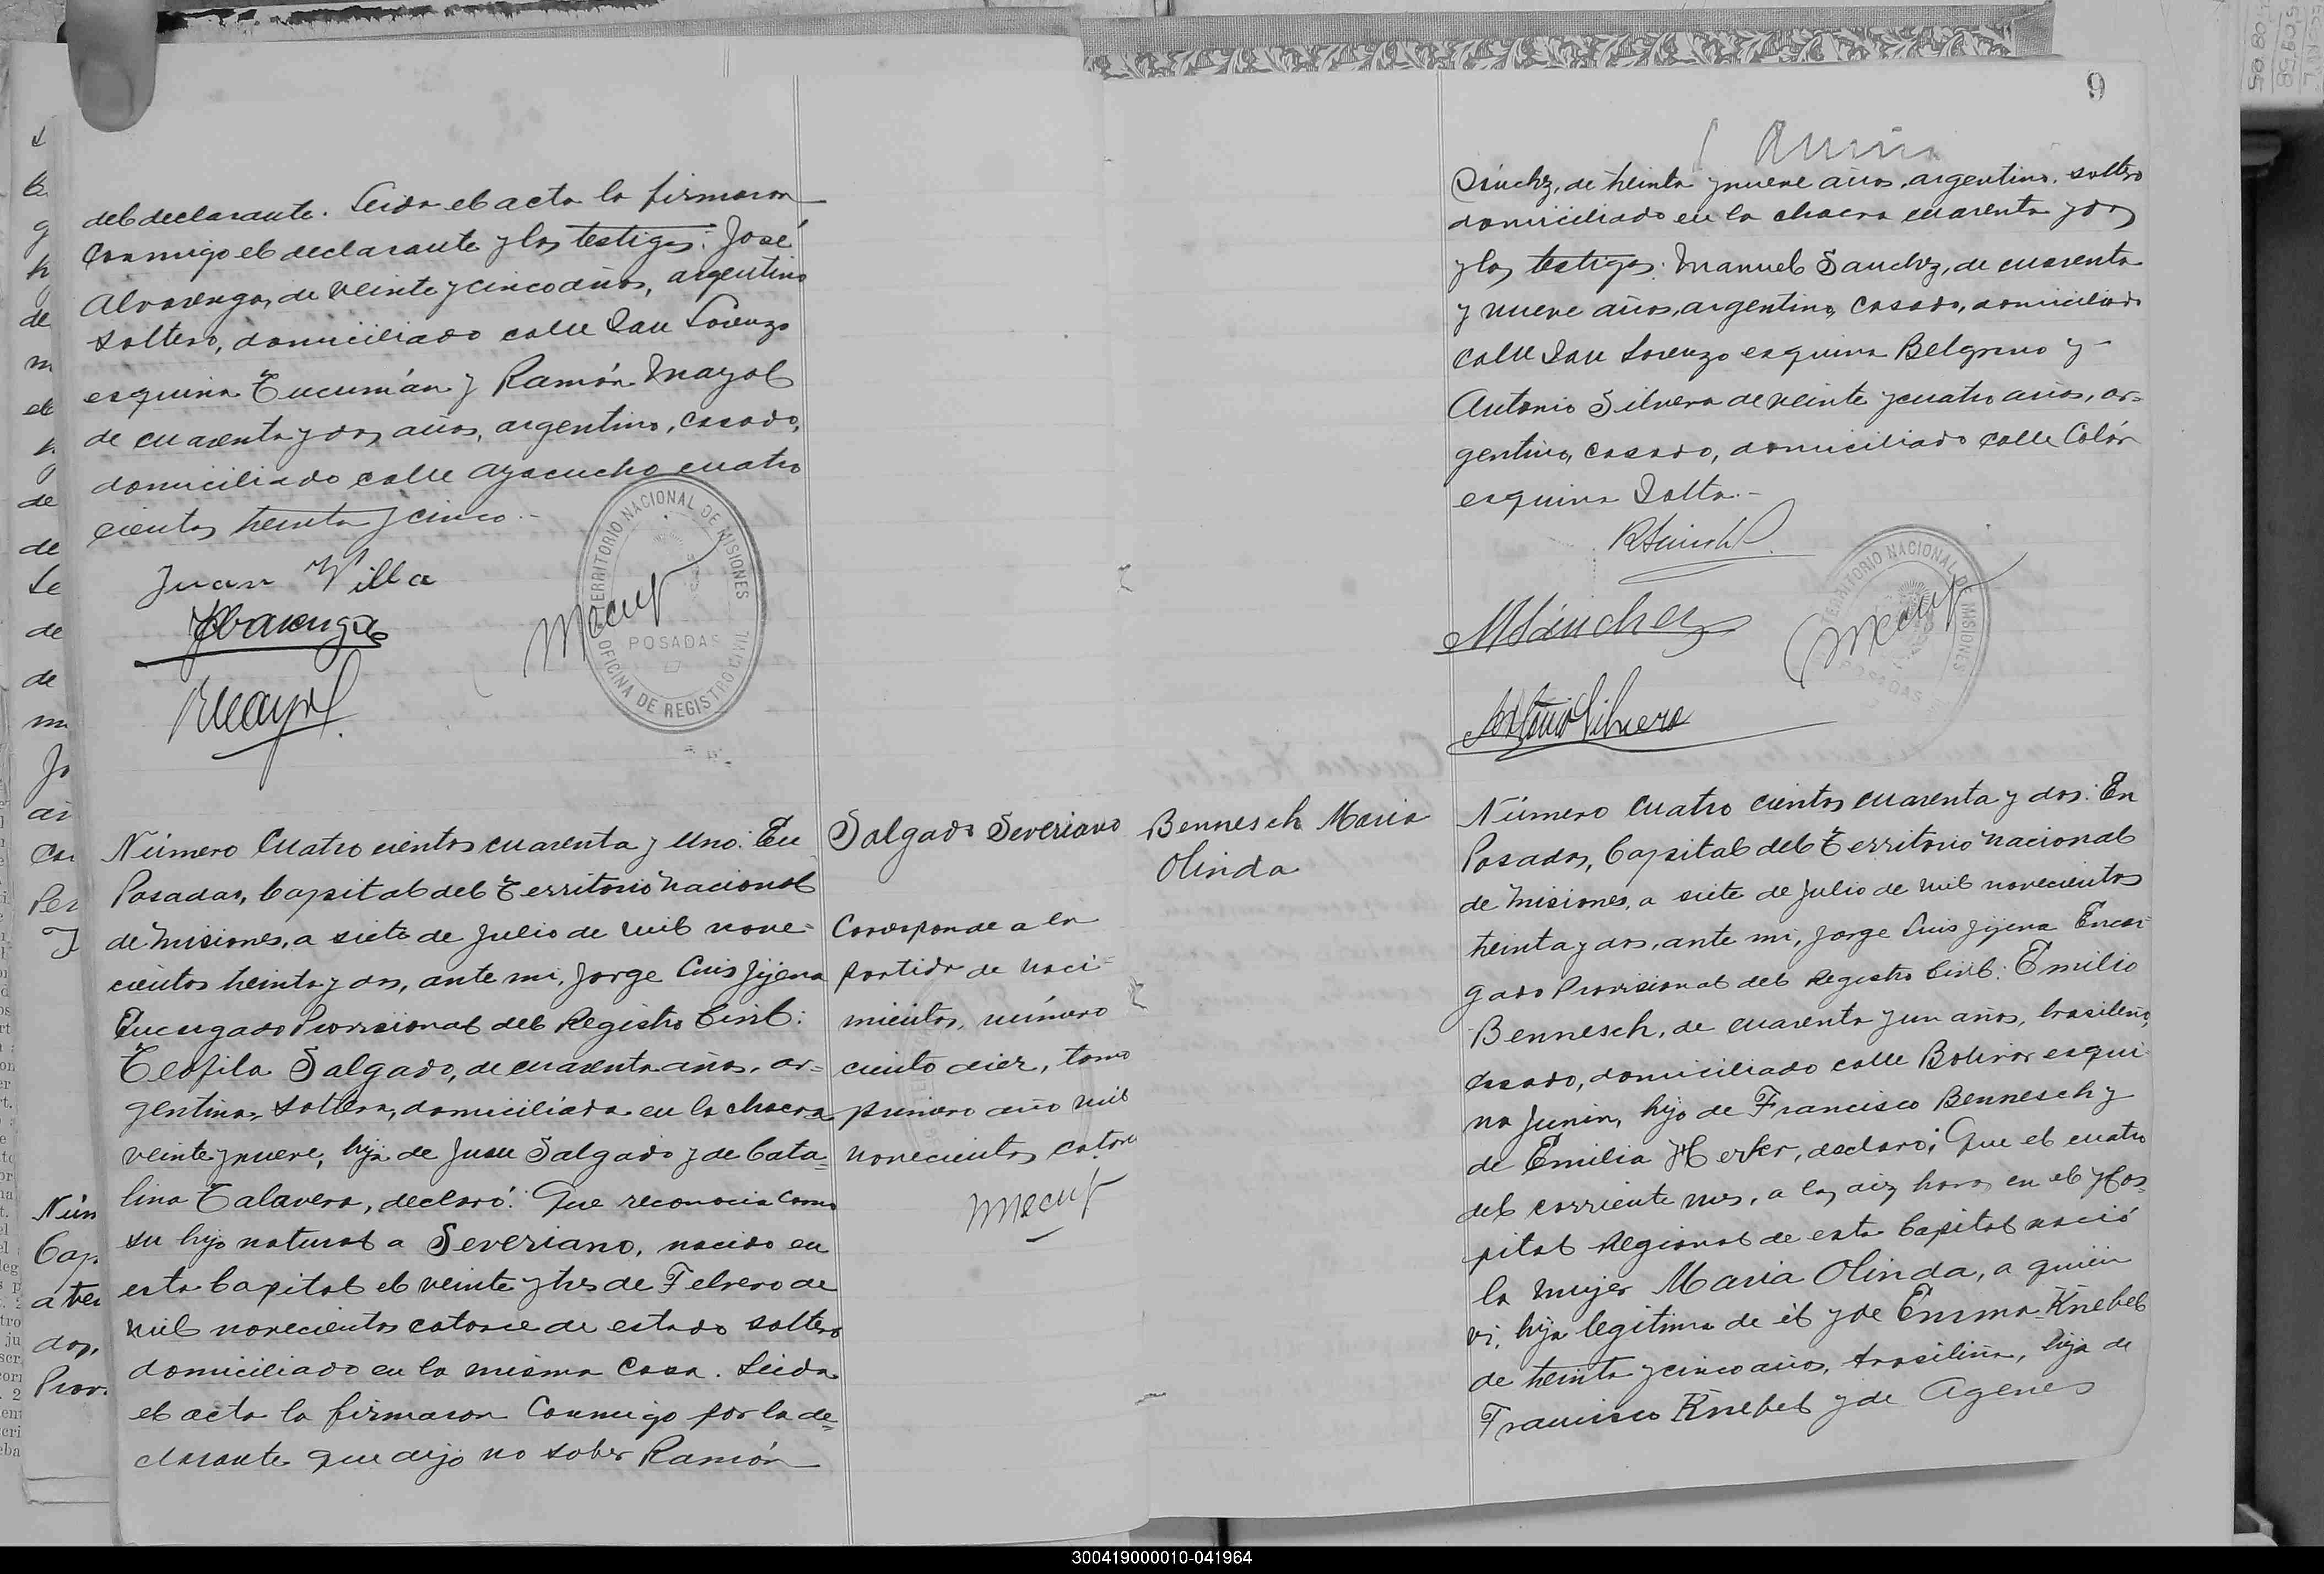 del declarante. Leida el acta la firmaron
conmigo el declarante y los testigos: José
Alvarenga, de veinte y cinco años, argentino
soltero, domiciliado calle San Lorenzo
esquina Tucumán y Ramón Mayol
de cuarenta y dos años, argentino, casado,
domiciliado calle Ayacucho cuatro
cientos treinta y cinco.-
Juan Villa
JAlvarenga
RMayol
TERRITORIO NACIONAL DE MISIONES
POSADAS
OFICINA DE REGISTRO CIVIL
Número Cuatro cientos cuarenta y uno: En
Posadas, Capital del Territorio Nacional
de Misiones, a siete de Julio de mil nove-
cientos treinta y dos, ante mi, Jorge Luis Jijena
Encargado Provisional del Registro Civil:
Teofila Salgado, de cuarenta años, ar=
gentina, soltera, domiciliada en la chacra
veinte y nueve, hija de Juan Salgado y de Cata=
lina Talavera, declaró: Que reconocia como
su hijo natural a Severiano, nacido en
esta Capital el veinte y tres de Febrero de
mil novecientos catorce de estado soltero
domiciliado en la misma casa. Leida
el acta la firmaron conmigo por la de=
clarante que dijo no saber Ramón
Salgado Severiano
Corresponde a la
partida de naci=
mientos, número
ciento diez, tomo
primero año mil
novecientos catorce
Bennesch Maria
Olinda
9
Sánchez, de treinta y nueve años, argentino, soltero
domiciliado en la chacra cuarenta y dos
y los testigos: Manuel Sanchez, de cuarenta
y nueve años, argentino, casado, domiciliado
calle San Lorenzo esquina Belgrano y-
Antonio Silvera de veinte y cuatro años, ar=
gentino, casado, domiciliado calle Colón
esquina Salta.-
RSánchez
MSánchez
Antonio Silvera
TERRITORIO NACIONAL DE MISIONES
POSADAS
Número Cuatro cientos cuarenta y dos: En
Posadas, Capital del Territorio Nacional
de Misiones, a siete de Julio de mil novecientos
treinta y dos, ante mi, Jorge Luis Jijena Encar
gado Provisional del Registro Civil: Emilio
Bennesch, de cuarenta y un años, brasileño,
casado, domiciliado calle Bolivar esqui-
na Junin, hijo de Francisco Bennesch y
de Emilia Herker, declaró: Que el cuatro
del corriente mes, a las diez horas en el Hos-
pital Regional de esta Capital nació
la mujer Maria Olinda, a quién
vi, hija legitima de él y de Emma Knebel
de treinta y cinco años, brasileña, hija de
Francisco Knebel y de Agenes
Nún
Cap.
dos,
Prov.
300419000010-041964